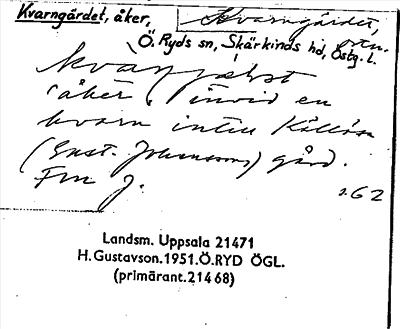 Kvarngärdet, åker,
Kvarngärdet,
Ö. Ryds sn, Skärkinds hd, Östg. l.
åker, invid en
kvarn intill
(Gust. Johanssons) gård.
s. 62
Landsm. Uppsala 21471
H. Gustavson. 1951. Ö. RYD ÖGL.
(primärant. 21468)